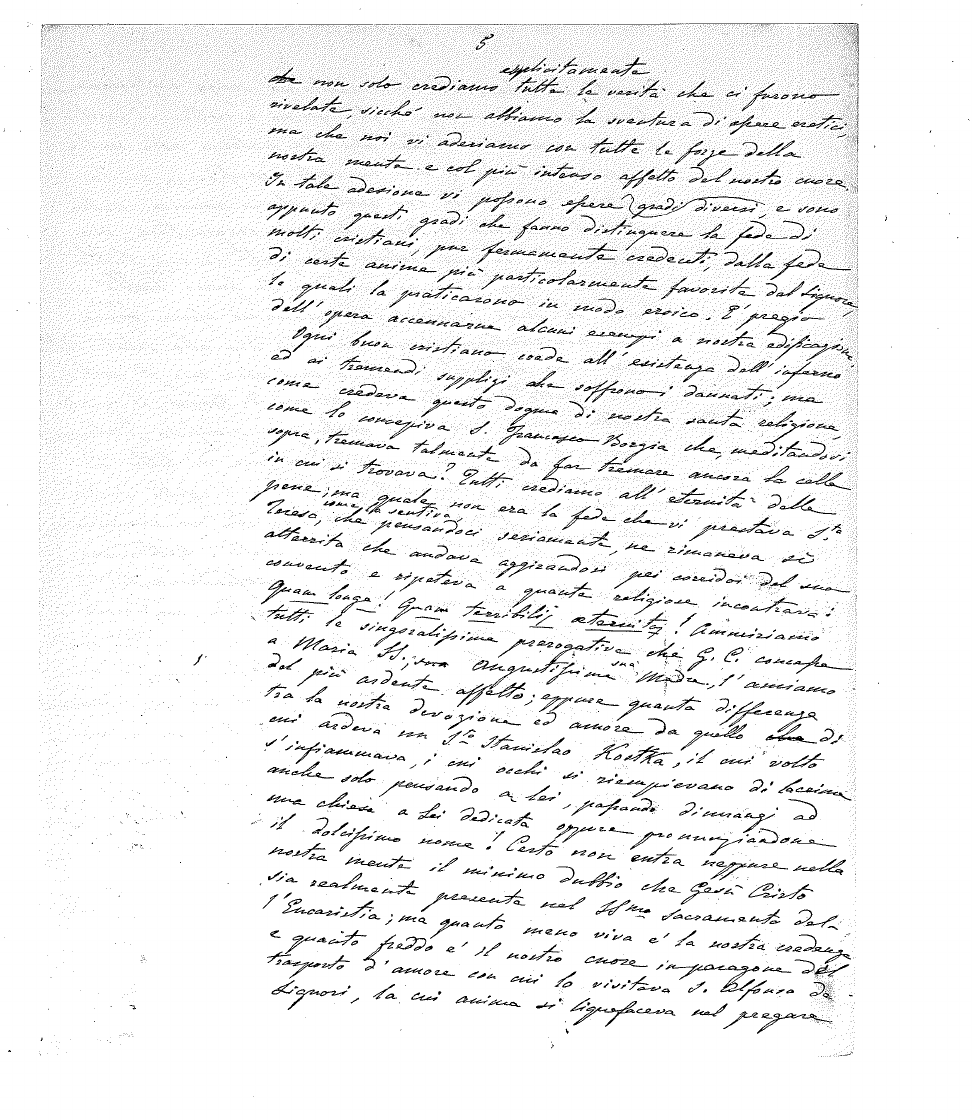 5
explicitamente
che non solo crediamo tutte le verità che ci furono
rivelate, sicché non abbiamo la sventura di essere eretici,
ma che noi vi aderiamo con tutte le forze della
nostra mente e col più intenso affetto del nostro cuore.
In tale adesione vi possono essere gradi diversi, e sono
appunto questi gradi che fanno distinguere la fede di
molti cristiani, pur fermamente credenti, dalla fede
di certe anime più particolarmente favorite dal Signore,
le quali la praticarono in modo eroico. È pregio
dell'opera accennarne alcuni esempi a nostra edificazione.
Ogni buon cristiano crede all'esistenza dell'inferno
ed ai tremendi supplizi che soffrono i dannati; ma
come credeva questo dogma di nostra santa religione,
come lo concepiva S. Francesco Borgia che, meditandovi
sopra, tremava talmente da far tremare ancora la cella
in cui si trovava? Tutti crediamo all'eternità delle
pene; ma quale non era la fede che vi prestava S.ta
Teresa, come la sentiva, che pensandoci seriamente, ne rimaneva sì
atterrita che andava aggirandosi pei corridoi del suo
convento e ripeteva a quante religiose incontrava:
Quam longa! Quam terribilis aeternitas! Ammiriamo
tutti le singolarissime prerogative che G. C. concesse
a Maria SS. sua augustissima sua Madre, l'amiamo
del più ardente affetto; eppure quanta differenza
tra la nostra devozione ed amore da quello che di
cui ardeva un S.to Stanislao Kostka, il cui volto
s'infiammava, i cui occhi si riempievano di lacrime
anche solo pensando a Lei, passando dinnanzi ad
una chiesa a Lei dedicata oppure pronunziandone
il dolcissimo nome! Certo non entra neppure nella
nostra mente il minimo dubbio che Gesù Cristo
sia realmente presente nel SSmo sacramento del-
l'Eucaristia; ma quanto meno viva è la nostra credenza
e quanto freddo è il nostro cuore in paragone del
trasporto d'amore con cui lo visitava S. Alfonso de
Liguori, la cui anima si liquefaceva nel pregare